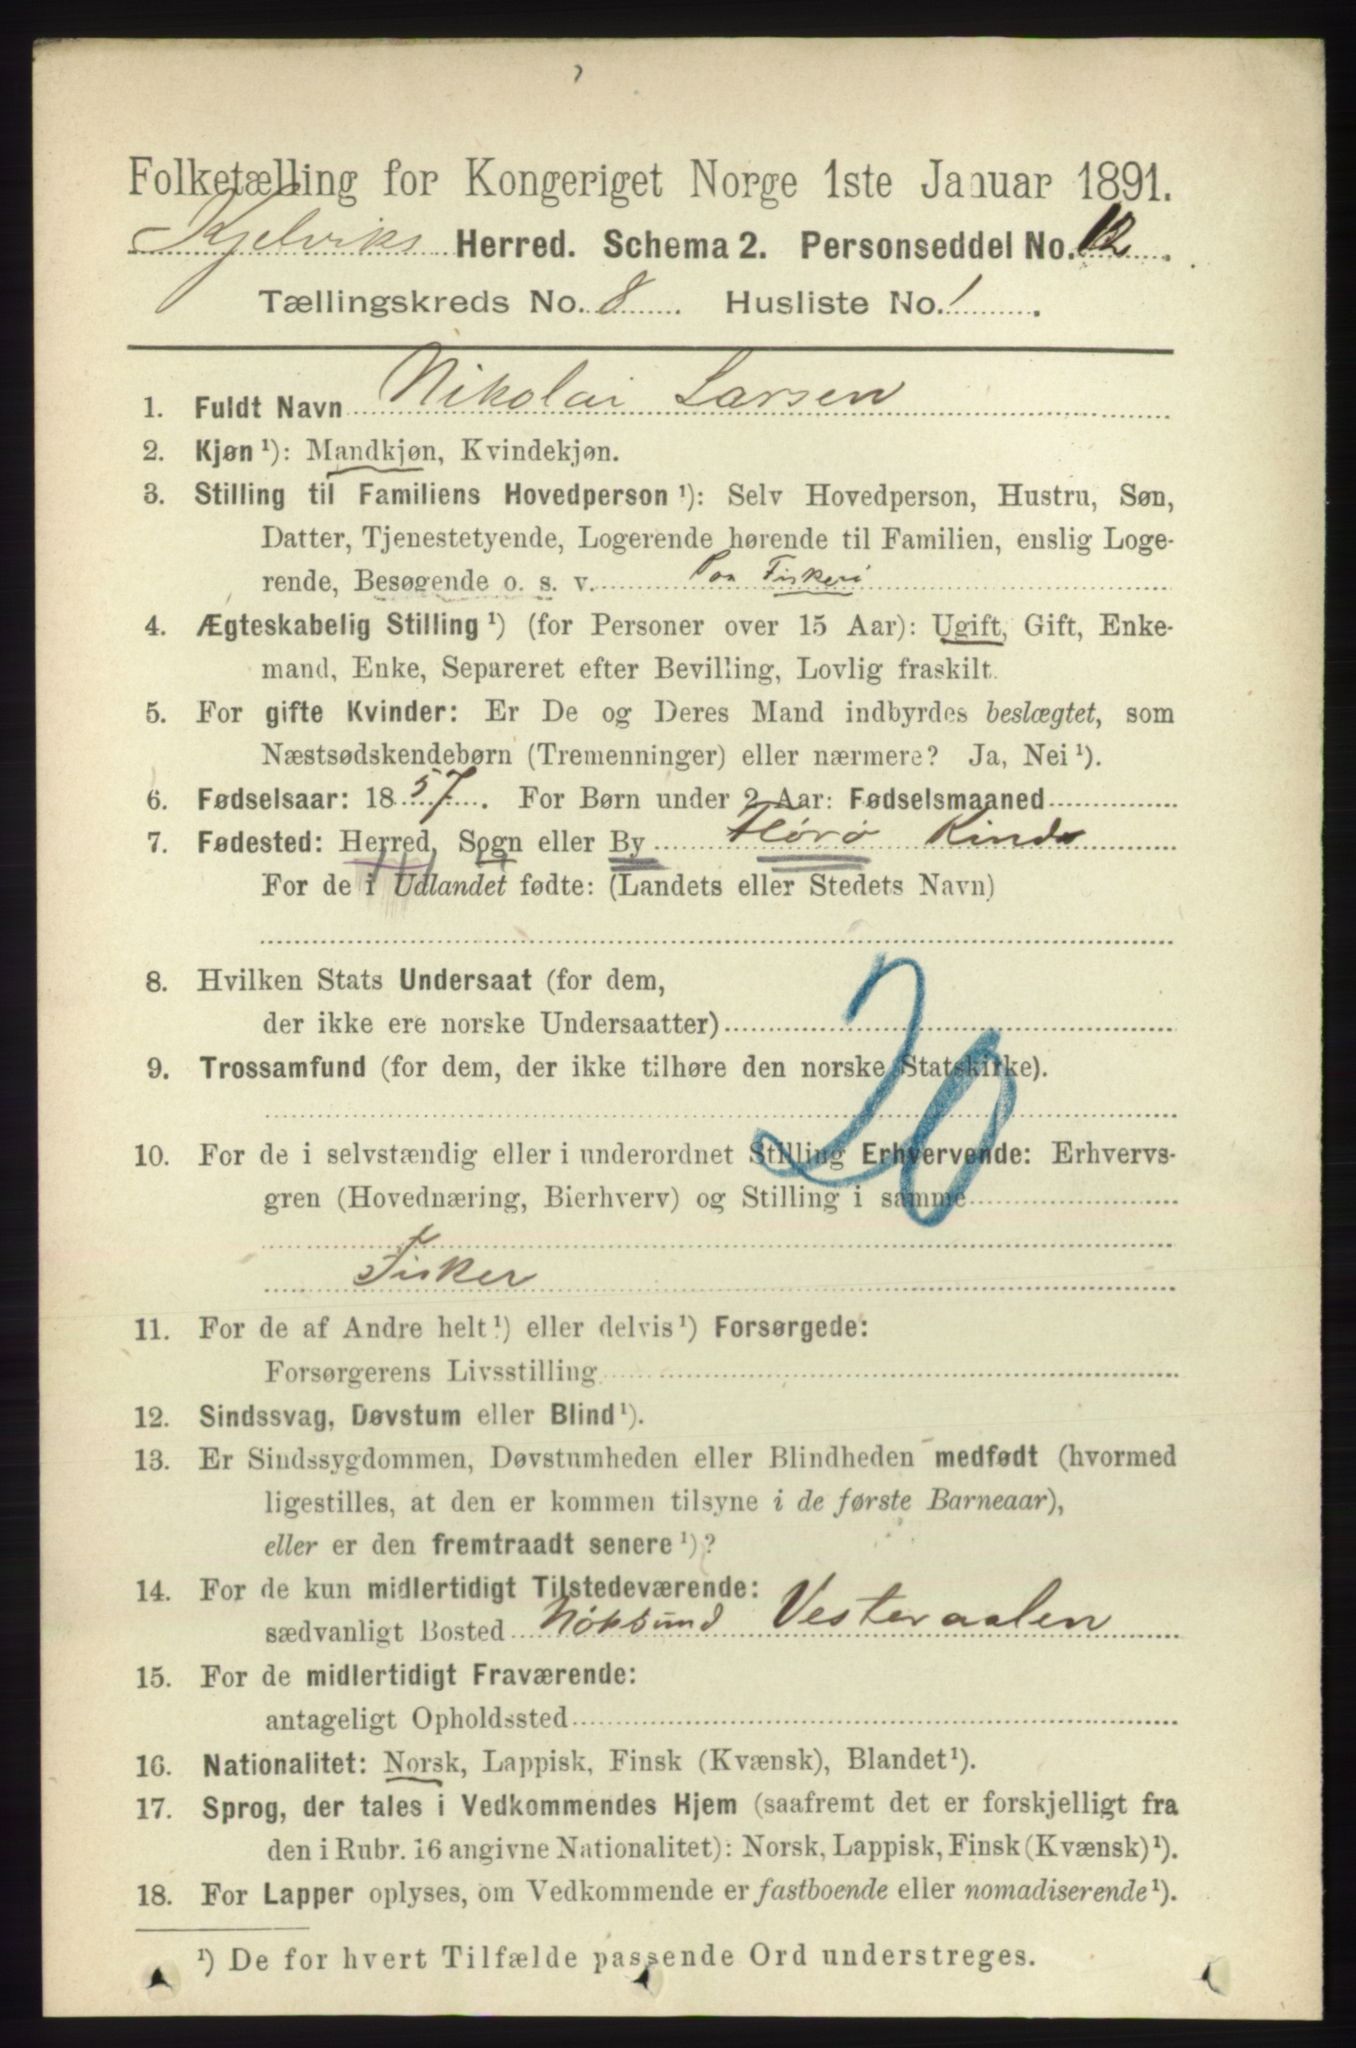 Folketælling for Kongeriget Norge 1ste Januar 1891.
Kjelviks Herred. Schema 2. Personseddel No. 12.
Tællingskreds No. 8. Husliste No. 1.
1. Fuldt Navn Nikolai Larsen
2. Kjøn ¹): Mandkjøn, Kvindekjøn.
3. Stilling til Familiens Hovedperson ¹): Selv Hovedperson, Hustru, Søn,
Datter, Tjenestetyende, Logerende hørende til Familien, enslig Loge-
rende, Besøgende o. s. v. Paa Fiskeri
4. Ægteskabelig Stilling ¹) (for Personer over 15 Aar): Ugift, Gift, Enke-
mand, Enke, Separeret efter Bevilling, Lovlig fraskilt.
5. For gifte Kvinder: Er De og Deres Mand indbyrdes beslægtet, som
Næstsødskendebørn (Tremenninger) eller nærmere? Ja, Nei ¹).
6. Fødselsaar: 1857. For Børn under 2 Aar: Fødselsmaaned
7. Fødested: Herred, Sogn eller By Florø Kinds
For de i Udlandet fødte: (Landets eller Stedets Navn)
8. Hvilken Stats Undersaat (for dem,
der ikke ere norske Undersaatter)
20
9. Trossamfund (for dem, der ikke tilhøre den norske Statskirke).
10. For de i selvstændig eller i underordnet Stilling Erhvervende: Erhvervs-
gren (Hovednæring, Bierhverv) og Stilling i samme
Fisker
11. For de af Andre helt ¹) eller delvis ¹) Forsørgede:
Forsørgerens Livsstilling
12. Sindssvag, Døvstum eller Blind ¹).
13. Er Sindssygdommen, Døvstumheden eller Blindheden medfødt (hvormed
ligestilles, at den er kommen tilsyne i de første Barneaar),
eller er den fremtraadt senere ¹)?
14. For de kun midlertidigt Tilstedeværende:
sædvanligt Bosted Nøksund Vesteraalen
15. For de midlertidigt Fraværende:
antageligt Opholdssted
16. Nationalitet: Norsk, Lappisk, Finsk (Kvænsk), Blandet ¹).
17. Sprog, der tales i Vedkommendes Hjem (saafremt det er forskjelligt fra
den i Rubr. 16 angivne Nationalitet): Norsk, Lappisk, Finsk (Kvænsk) ¹).
18. For Lapper oplyses, om Vedkommende er fastboende eller nomadiserende ¹).
¹) De for hvert Tilfælde passende Ord understreges.